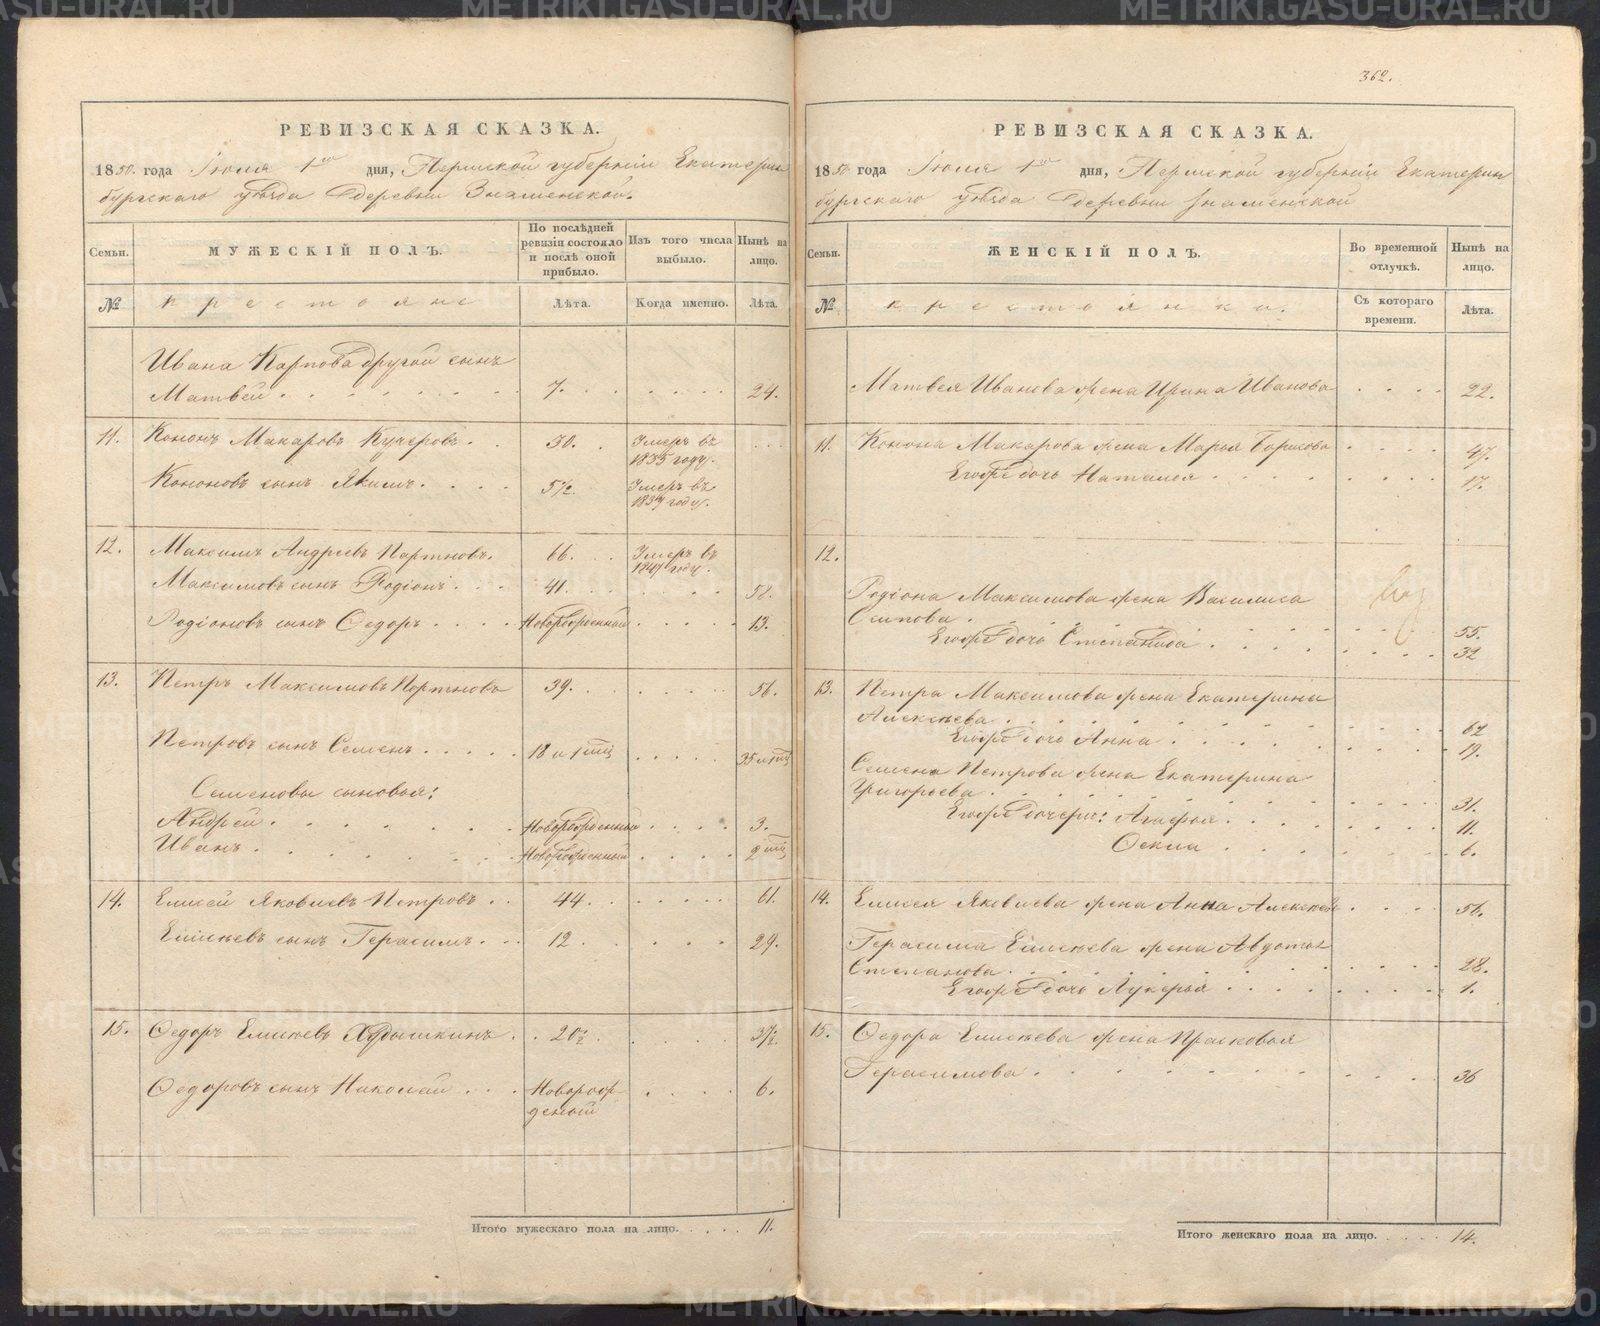 РЕВИЗСКАЯ СКАЗКА.
1850. года Іюля 1го дня, Пермской губерніи Екатерин
бургскаго уѣзда Деревни Знаменской.
Семьи.
МУЖЕСКІЙ ПОЛЪ.
По послѣдней ревизіи состояло и послѣ оной прибыло.
Изъ того числа выбыло.
Нынѣ на лицо.
№
крестояне
Лѣта.
Когда именно.
Лѣта.
Ивана Карпова другой сынъ
Матвей 7. 24.
11. Кононъ Макаровъ Кучеровъ 50. Умеръ въ
1835 году.
Кононовъ сынъ Якимъ 5½ Умеръ въ
году.
12. Максимъ Андреевъ Портновъ. 66. Умеръ въ
1847 году.
Максимовъ сынъ Родіонъ 41. 58.
Родіоновъ сынъ Ѳедоръ Новорожденный 13.
13. Петръ Максимовъ Портновъ 39. 56.
Петровъ сынъ Семенъ 18 и 1 мцъ 35 и 1 мцъ
Семеновы сыновья:
Андрей Новорожденный 3.
Иванъ Новорожденный 2 мцъ
14. Елисей Яковлевъ Петровъ 44 61.
Елисѣевъ сынъ Герасимъ 12 29.
15. Ѳедоръ Елисѣевъ 20½ 37½
Ѳедоровъ сынъ Николай Новорож-
деный 6.
Итого мужескаго пола на лицо. 11.
362.
РЕВИЗСКАЯ СКАЗКА.
1850 года Іюля 1го дня, Пермской губерніи Екатерин
бургскаго уѣзда Деревни Знаменской
Семьи.
ЖЕНСКІЙ ПОЛЪ.
Во временной отлучкѣ.
Нынѣ на лицо.
№
крестоянки.
Съ котораго времени.
Лѣта.
Матвея Иванова жена Ирина Иванова 22.
11. Конона Макарова жена Марья Борисова 47.
Егоже дочь Наталья 17.
12.
Родіона Максимова жена Василиса
Осипова 55.
Егоже дочь Степанида 32
13. Петра Максимова жена Екатерина
Алексѣева 62
Егоже дочь Анна 19.
Семена Петрова жена Екатерина
Григорьева 31.
Егоже дочери: Агафья 11.
Ѳекла 6.
14. Елисея Яковлева жена Анна Алексѣева 56.
Герасима Елисѣева жена Авдотья
Степанова 28.
Егоже дочь Лукерья 1.
15. Ѳедора Елисѣева жена Прасковья
Герасимова 36
Итого женскаго пола на лицо. 14.
METRIKI.GASO-URAL.RU